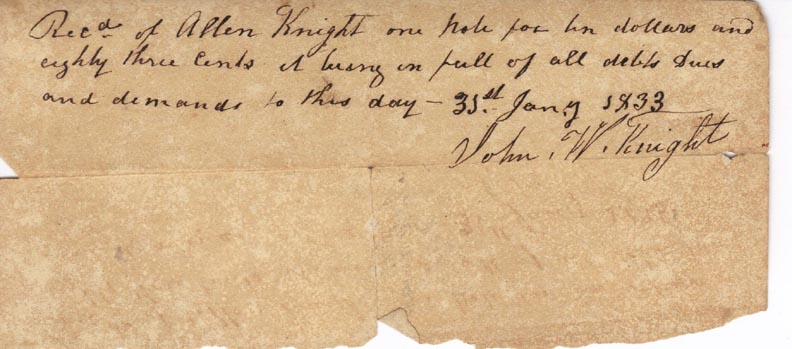 Recd. of Allen Knight one Note for ten dollars and
eighty three Cents it being in full of all debts Dues
and demands to this day – 31st Jany 1833
John. W. Knight